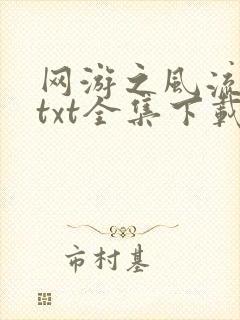 网游之风流
txt全集下载
市村基